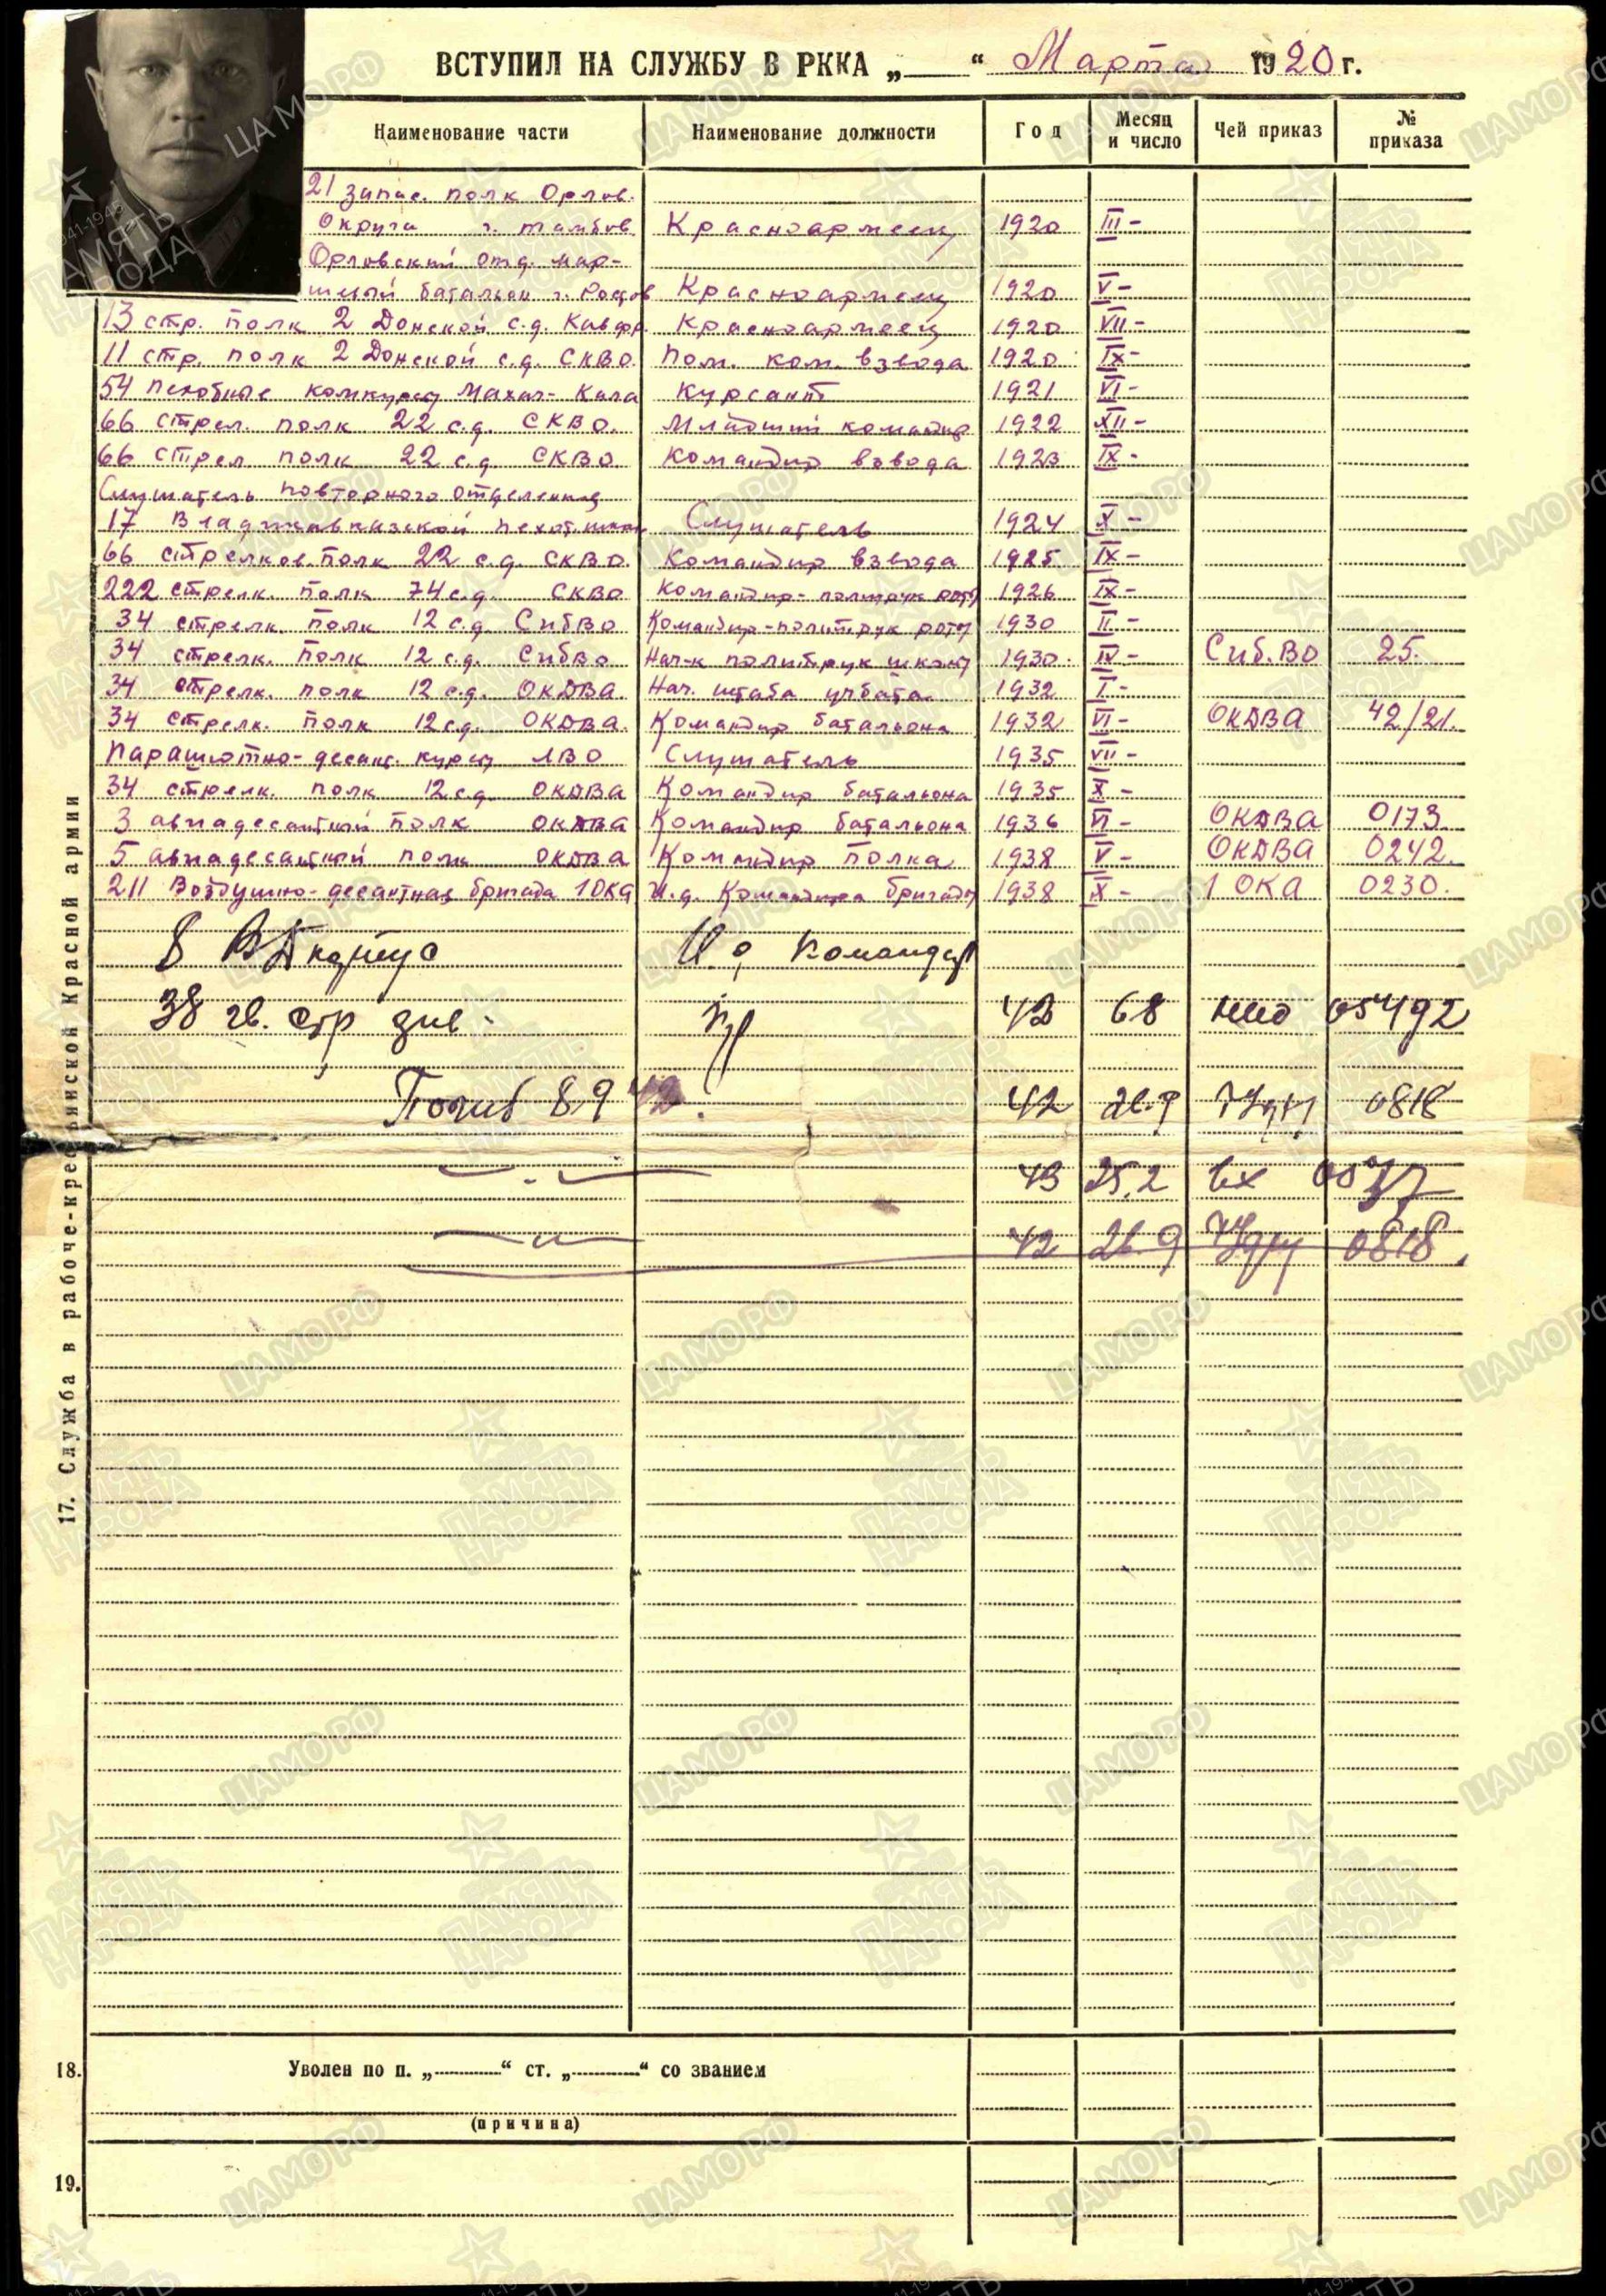 ВСТУПИЛ НА СЛУЖБУ В РККА „ “ Марта 1920 г.
Наименование части Наименование должности Год Месяц и число Чей приказ № приказа
21 запас. полк Орлов.
Округа г. Тамбов Красноармеец 1920 III-
Орловский отд. мар-
шевый батальон г. Ростов Красноармеец 1920 V-
13 стр. полк 2 Донской с.д. Кавфр. Красноармеец 1920 VII-
11 стр. полк 2 Донской с.д. СКВО. Пом. ком. взвода 1920 IX-
54 пехотные комкурсы Махач-Кала Курсант 1921 VI-
66 стрел. полк 22 с.д. СКВО. Младший командир 1922 XII-
66 стрел. полк 22 с.д. СКВО Командир взвода 1923 IX-
Слушатель повторного отделения
17 Владикавказской пехот. школы Слушатель 1924 X-
66 стрелков. полк 22 с.д. СКВО. Командир взвода 1925 IX-
222 стрелк. полк 74 с.д. СКВО Командир-политрук роты 1926 IX-
34 стрелк. полк 12 с.д. СибВО Командир-политрук роты 1930 II-
34 стрелк. полк 12 с.д. СибВО Нач-к политрук школы 1930. IV- Сиб.ВО 25.
34 стрелк. полк 12 с.д. ОКДВА. Нач. штаба учбата. 1932 I-
34 стрелк. полк 12 с.д. ОКДВА. Командир батальона 1932 VI- ОКДВА 42/21.
Парашютно-десант. курсы ЛВО Слушатель 1935 VII-
34 стрелк. полк 12 с.д. ОКДВА Командир батальона 1935 X-
3 авиадесантный полк ОКДВА Командир батальона 1936 VI- ОКДВА 0173.
5 авиадесантный полк ОКДВА Командир полка 1938 V- ОКДВА 0242.
211 Воздушно-десантная бригада 1 ОКА И.д. Командира бригады 1938 X- 1 ОКА 0230.
8 ВДкорпус И.д. Командир
38 гв. стр див. 42 6.8 нко 05492
Погиб 8.9 42. 42 26.9 0818
43 25.2 вх
42 26.9 0818.
17. Служба в рабоче-крестьянской Красной армии
18. Уволен по п. „ “ ст. „ “ со званием
(причина)
19.
ЦАМО.РФ
1941-1945
ПАМЯТЬ
НАРОДА